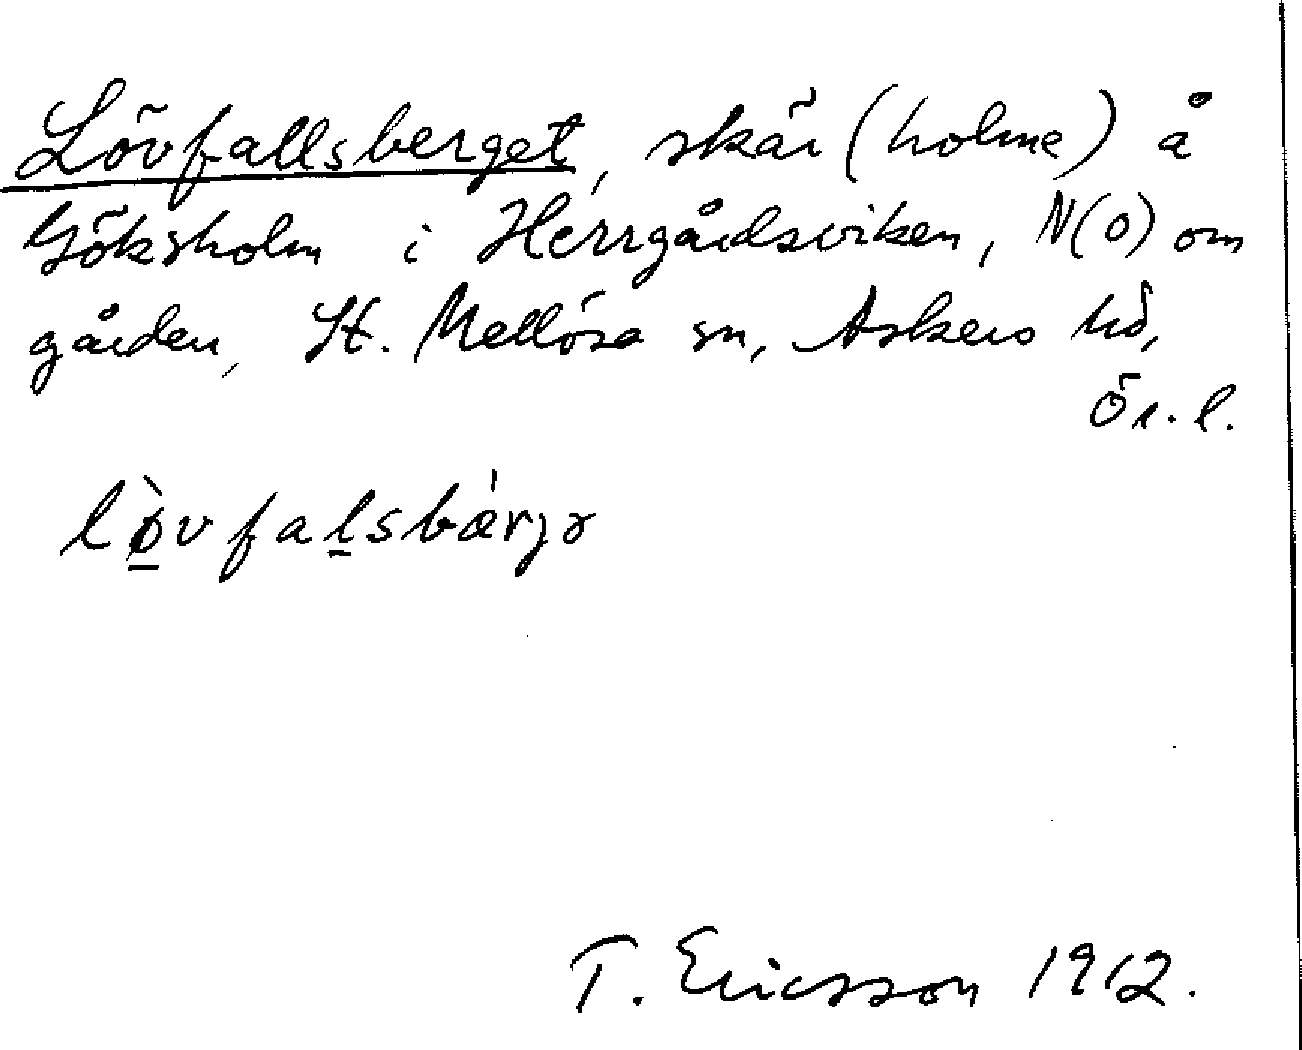 Lövfallsberget, skär (holme) å
Göksholm i Herrgårdsviken, N(O) om
gården, St. Mellösa sn, Askers hd,
Ör. l.
lø̀vfalsbǽrjə
T. Ericsson 1912.